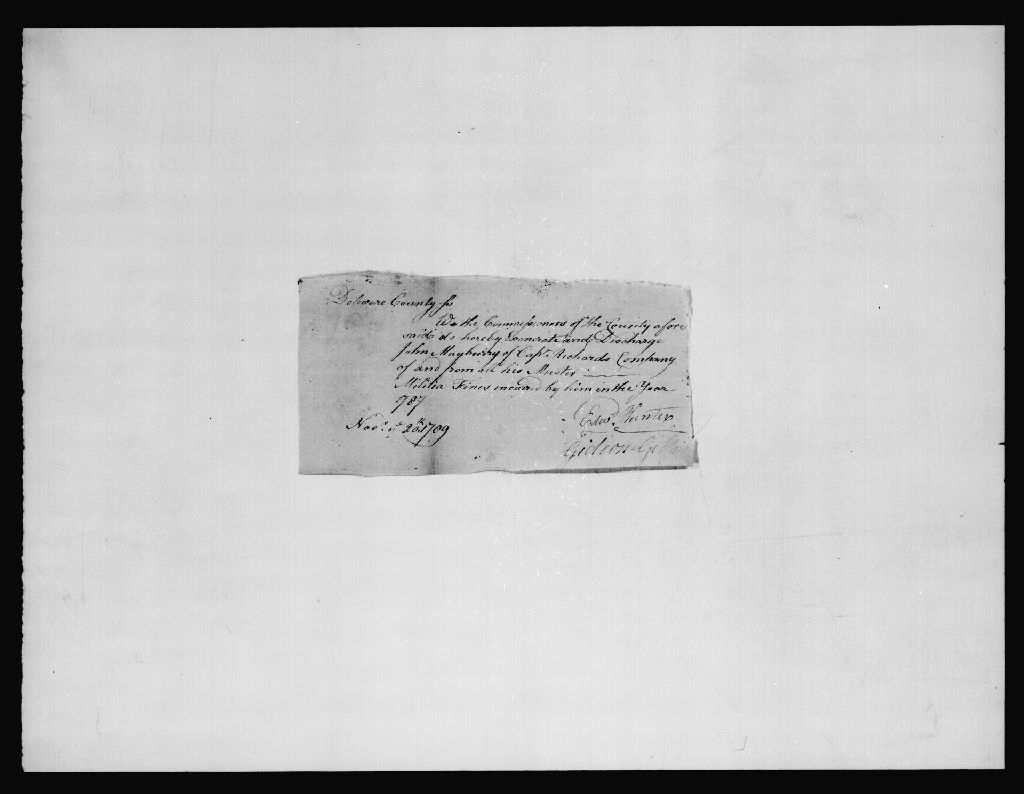 Delaware County ss
We the Commissioners of the County afore
said do hereby Exonerate and Discharge
John Maybury of Capt. Richards Company
of and from all his Muster
Militia Fines incurred by him in the Year
787
Nov. ye 20th 1789
Edwd. Hunter
Gideon